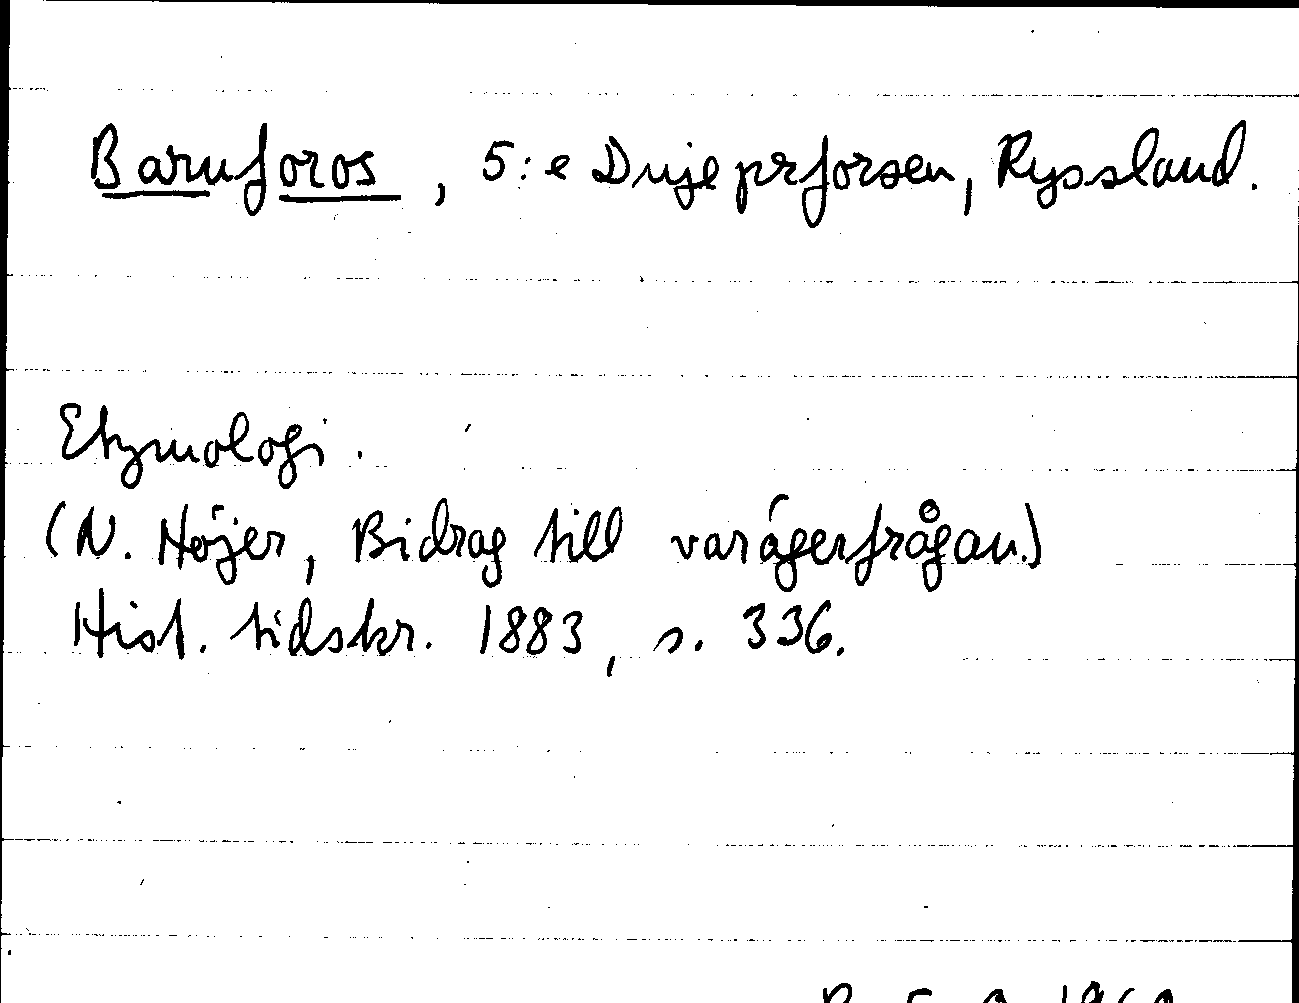 Baruforos, 5:e Dnjeprforsen, Ryssland.
Etymologi.
(N. Höjer, Bidrag till varägerfrågan.)
Hist. tidskr. 1883, s. 336.